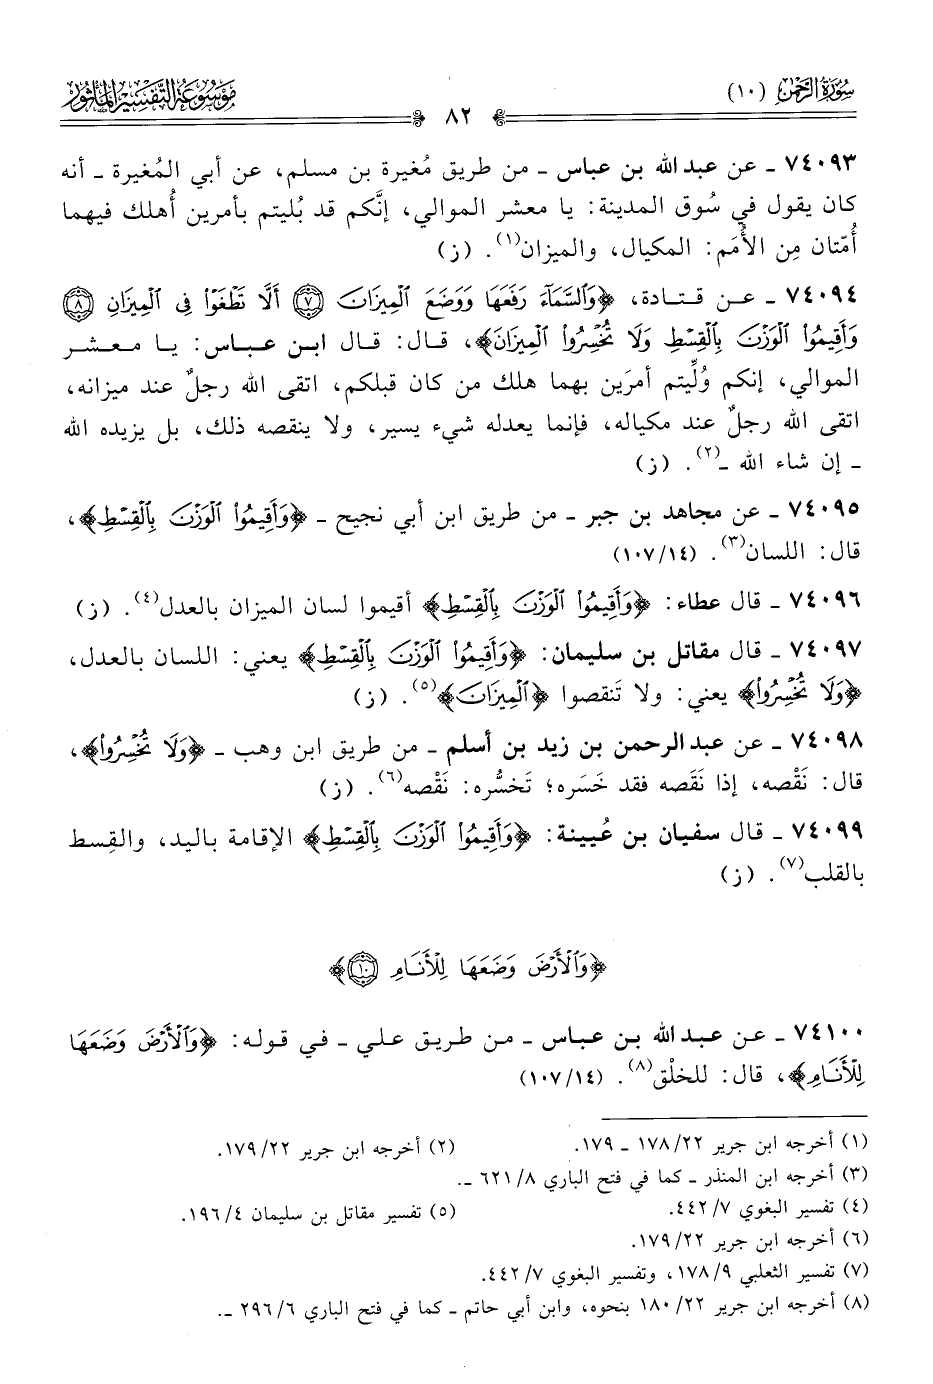 سُورَةُ الرَّحْمٰن (١٠)
٨٢
مَوْسُوعَة التَّفْسِيْرُ المَأْثُور
٧٤٠٩٣ ـ عن عبد الله بن عباس ـ من طريق مُغيرة بن مسلم، عن أبي المُغيرة ـ أنه
كان يقول في سُوق المدينة: يا معشر الموالي، إنَّكم قد بُليتم بأمرين أُهلك فيهما
أُمّتان مِن الأُمَم: المكيال، والميزان(١). (ز)
٧٤٠٩٤ ـ عن قتادة، ﴿وَٱلسَّمَآءَ رَفَعَهَا وَوَضَعَ ٱلْمِيزَانَ ۝٧ أَلَّا تَطْغَوْا۟ فِى ٱلْمِيزَانِ ۝٨
وَأَقِيمُوا۟ ٱلْوَزْنَ بِٱلْقِسْطِ وَلَا تُخْسِرُوا۟ ٱلْمِيزَانَ﴾، قال: قال ابن عباس: يا معشر
الموالي، إنكم وُلِّيتم أمرَين بهما هلك من كان قبلكم، اتقى الله رجلٌ عند ميزانه،
اتقى الله رجلٌ عند مكياله، فإنما يعدله شيء يسير، ولا ينقصه ذلك، بل يزيده الله
ـ إن شاء الله ـ(٢). (ز)
٧٤٠٩٥ ـ عن مجاهد بن جبر ـ من طريق ابن أبي نجيح ـ ﴿وَأَقِيمُوا۟ ٱلْوَزْنَ بِٱلْقِسْطِ﴾،
قال: اللسان(٣). (١٤/ ١٠٧)
٧٤٠٩٦ ـ قال عطاء: ﴿وَأَقِيمُوا۟ ٱلْوَزْنَ بِٱلْقِسْطِ﴾ أقيموا لسان الميزان بالعدل(٤). (ز)
٧٤٠٩٧ ـ قال مقاتل بن سليمان: ﴿وَأَقِيمُوا۟ ٱلْوَزْنَ بِٱلْقِسْطِ﴾ يعني: اللسان بالعدل،
﴿وَلَا تُخْسِرُوا۟﴾ يعني: ولا تَنقصوا ﴿ٱلْمِيزَانَ﴾(٥). (ز)
٧٤٠٩٨ ـ عن عبد الرحمن بن زيد بن أسلم ـ من طريق ابن وهب ـ ﴿وَلَا تُخْسِرُوا۟﴾،
قال: نَقْصه، إذا نَقَصه فقد خَسَره؛ تَخسُّره: نَقْصه(٦). (ز)
٧٤٠٩٩ ـ قال سفيان بن عُيينة: ﴿وَأَقِيمُوا۟ ٱلْوَزْنَ بِٱلْقِسْطِ﴾ الإقامة باليد، والقِسط
بالقلب(٧). (ز)
﴿وَٱلْأَرْضَ وَضَعَهَا لِلْأَنَامِ ۝١٠﴾
٧٤١٠٠ ـ عن عبد الله بن عباس ـ من طريق علي ـ في قوله: ﴿وَٱلْأَرْضَ وَضَعَهَا
لِلْأَنَامِ﴾، قال: للخلْق(٨). (١٤/ ١٠٧)
(١) أخرجه ابن جرير ٢٢/ ١٧٨ ـ ١٧٩. (٢) أخرجه ابن جرير ٢٢/ ١٧٩.
(٣) أخرجه ابن المنذر ـ كما في فتح الباري ٨/ ٦٢١ ـ.
(٤) تفسير البغوي ٧/ ٤٤٢. (٥) تفسير مقاتل بن سليمان ٤/ ١٩٦.
(٦) أخرجه ابن جرير ٢٢/ ١٧٩.
(٧) تفسير الثعلبي ٩/ ١٧٨، وتفسير البغوي ٧/ ٤٤٢.
(٨) أخرجه ابن جرير ٢٢/ ١٨٠ بنحوه، وابن أبي حاتم ـ كما في فتح الباري ٦/ ٢٩٦ ـ.